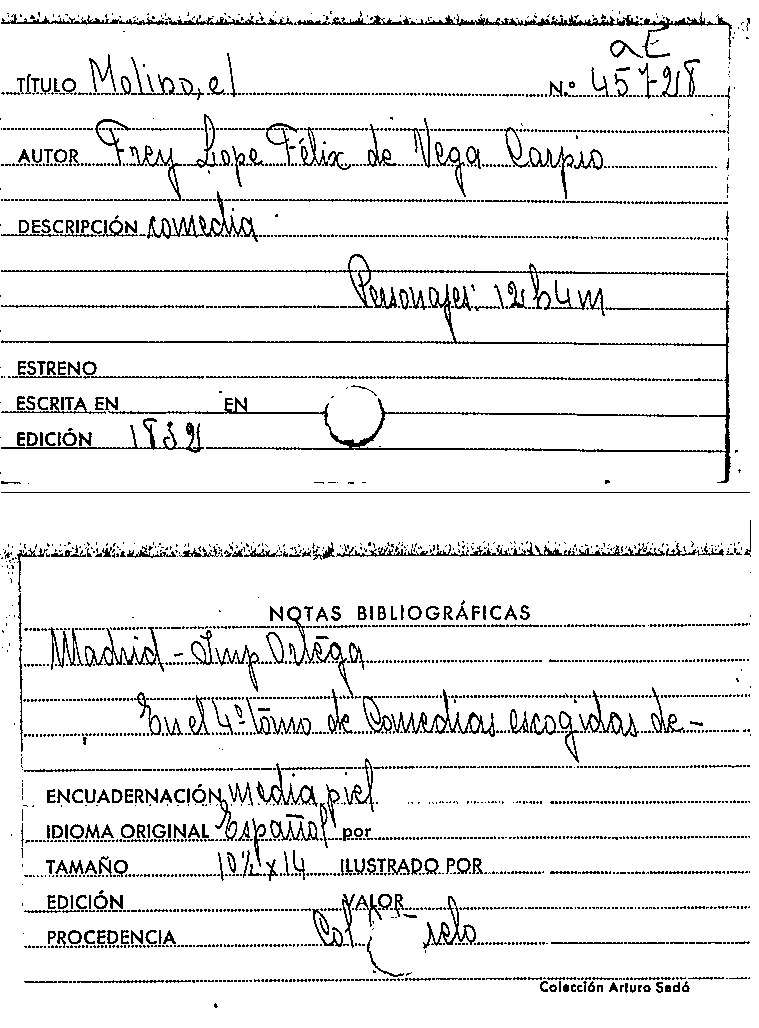 aE
TÍTULO Molino, el N.º 45728
AUTOR Frey Lope Félix de Vega Carpio
DESCRIPCIÓN comedia
Personajes: 12h4m
ESTRENO
ESCRITA EN EN
EDICIÓN 1832
NOTAS BIBLIOGRÁFICAS
Madrid - Imp Ortega
En el 4º tomo de Comedias escogidas de-
ENCUADERNACIÓN media piel
IDIOMA ORIGINAL Español por
TAMAÑO 10½ x 14 ILUSTRADO POR
EDICIÓN VALOR
PROCEDENCIA Col
Colección Arturo Sedó